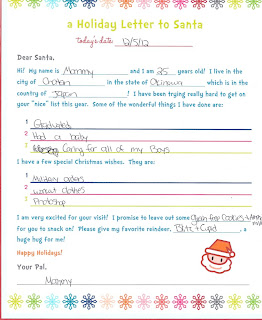 a Holiday Letter to Santa
today's date: 12/5/12
Dear Santa,
Hi! My name is Mommy and I am 25 years old! I live in the
city of Chatan in the state of Okinawa which is in the
country of Japan! I have been trying really hard to get on
your "nice" list this year. Some of the wonderful things I have done are:
1 Graduated
2 Had a baby
3 Caring for all of my Boys
I have a few special Christmas wishes. They are:
1 Military orders
2 workout clothes
3 Photoshop
I am very excited for your visit! I promise to leave out some Gluten free Cookies &
For you to snack on! Please give my favorite reindeer, Blitz & Cupid, a
huge hug for me!
Happy Holidays!
Your Pal,
Mommy